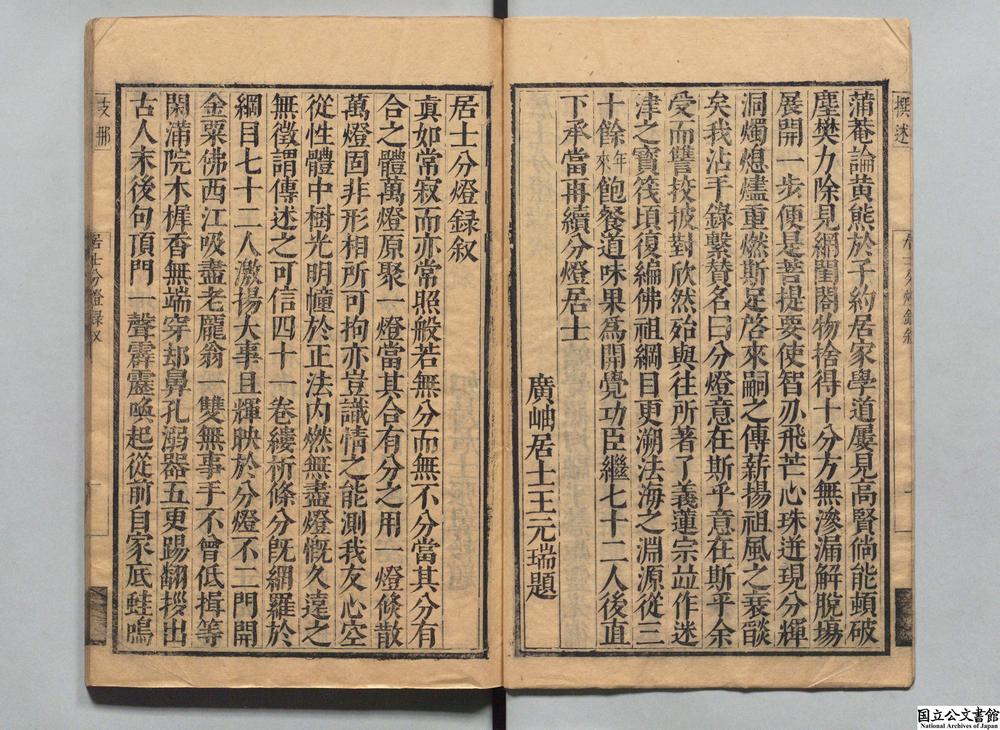 撰述
蒲菴論黄熊於子約居家學道屢見高賢倘能頓破
塵樊力除見網闤闠物捨得十分方無滲漏解脫場
展開一步便是菩提要使智刅飛芒心珠迸現分輝
洞燭熄燼重燃斯足啓來嗣之傳薪揚祖風之衰燄
矣我沾手錄繫賛名曰分燈意在斯乎意在斯乎余
受而讐挍披對欣然殆與往所著了義蓮宗竝作迷
津之寶筏頃復編佛祖綱目更溯法海之淵源從三
十餘年來飽餐道味果爲開覺功臣繼七十二人後直
下承當再續分燈居士
廣岫居士王元瑞題
居士分燈録叙
真如常寂而亦常照般若無分而無不分當其分有
合之體萬燈原聚一燈當其合有分之用一燈倐散
萬燈固非形相所可拘亦豈識情之能測我友心空
從性體中樹光明幢於正法内燃無盡燈慨久遠之
無徵謂傳述之可信四十一卷縷析條分既網羅於
綱目七十二人激揚大事且輝映於分燈不二門開
金粟佛西江吸盡老龐翁一雙無事手不曾低揖等
閑滿院木樨香無端穿却鼻孔溺器五更踢翻拶出
古人末後句頂門一聲霹靂喚起從前自家底蛙鳴
支那
居士分燈録叙
一
国立公文書館
National Archives of Japan